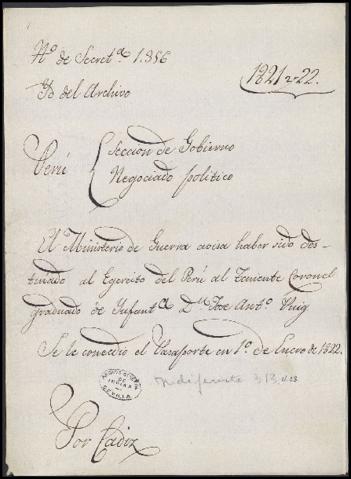 Nº de Secretª 1.356
Yd del Archivo
1821 22.
Perú
Seccion de Gobierno
Negociado politico
El Ministerio de Guerra avisa haber sido des-
tinado al Egercito del Perú al Teniente Coronel
graduado de Infantª Dn Jose Antº Puig
Se le concedio el Pasaporte en 1º de Enero de 1822.
ARCHIVO GENERAL
DE
INDIAS
SEVILLA
Indiferente 313
Por Cadiz